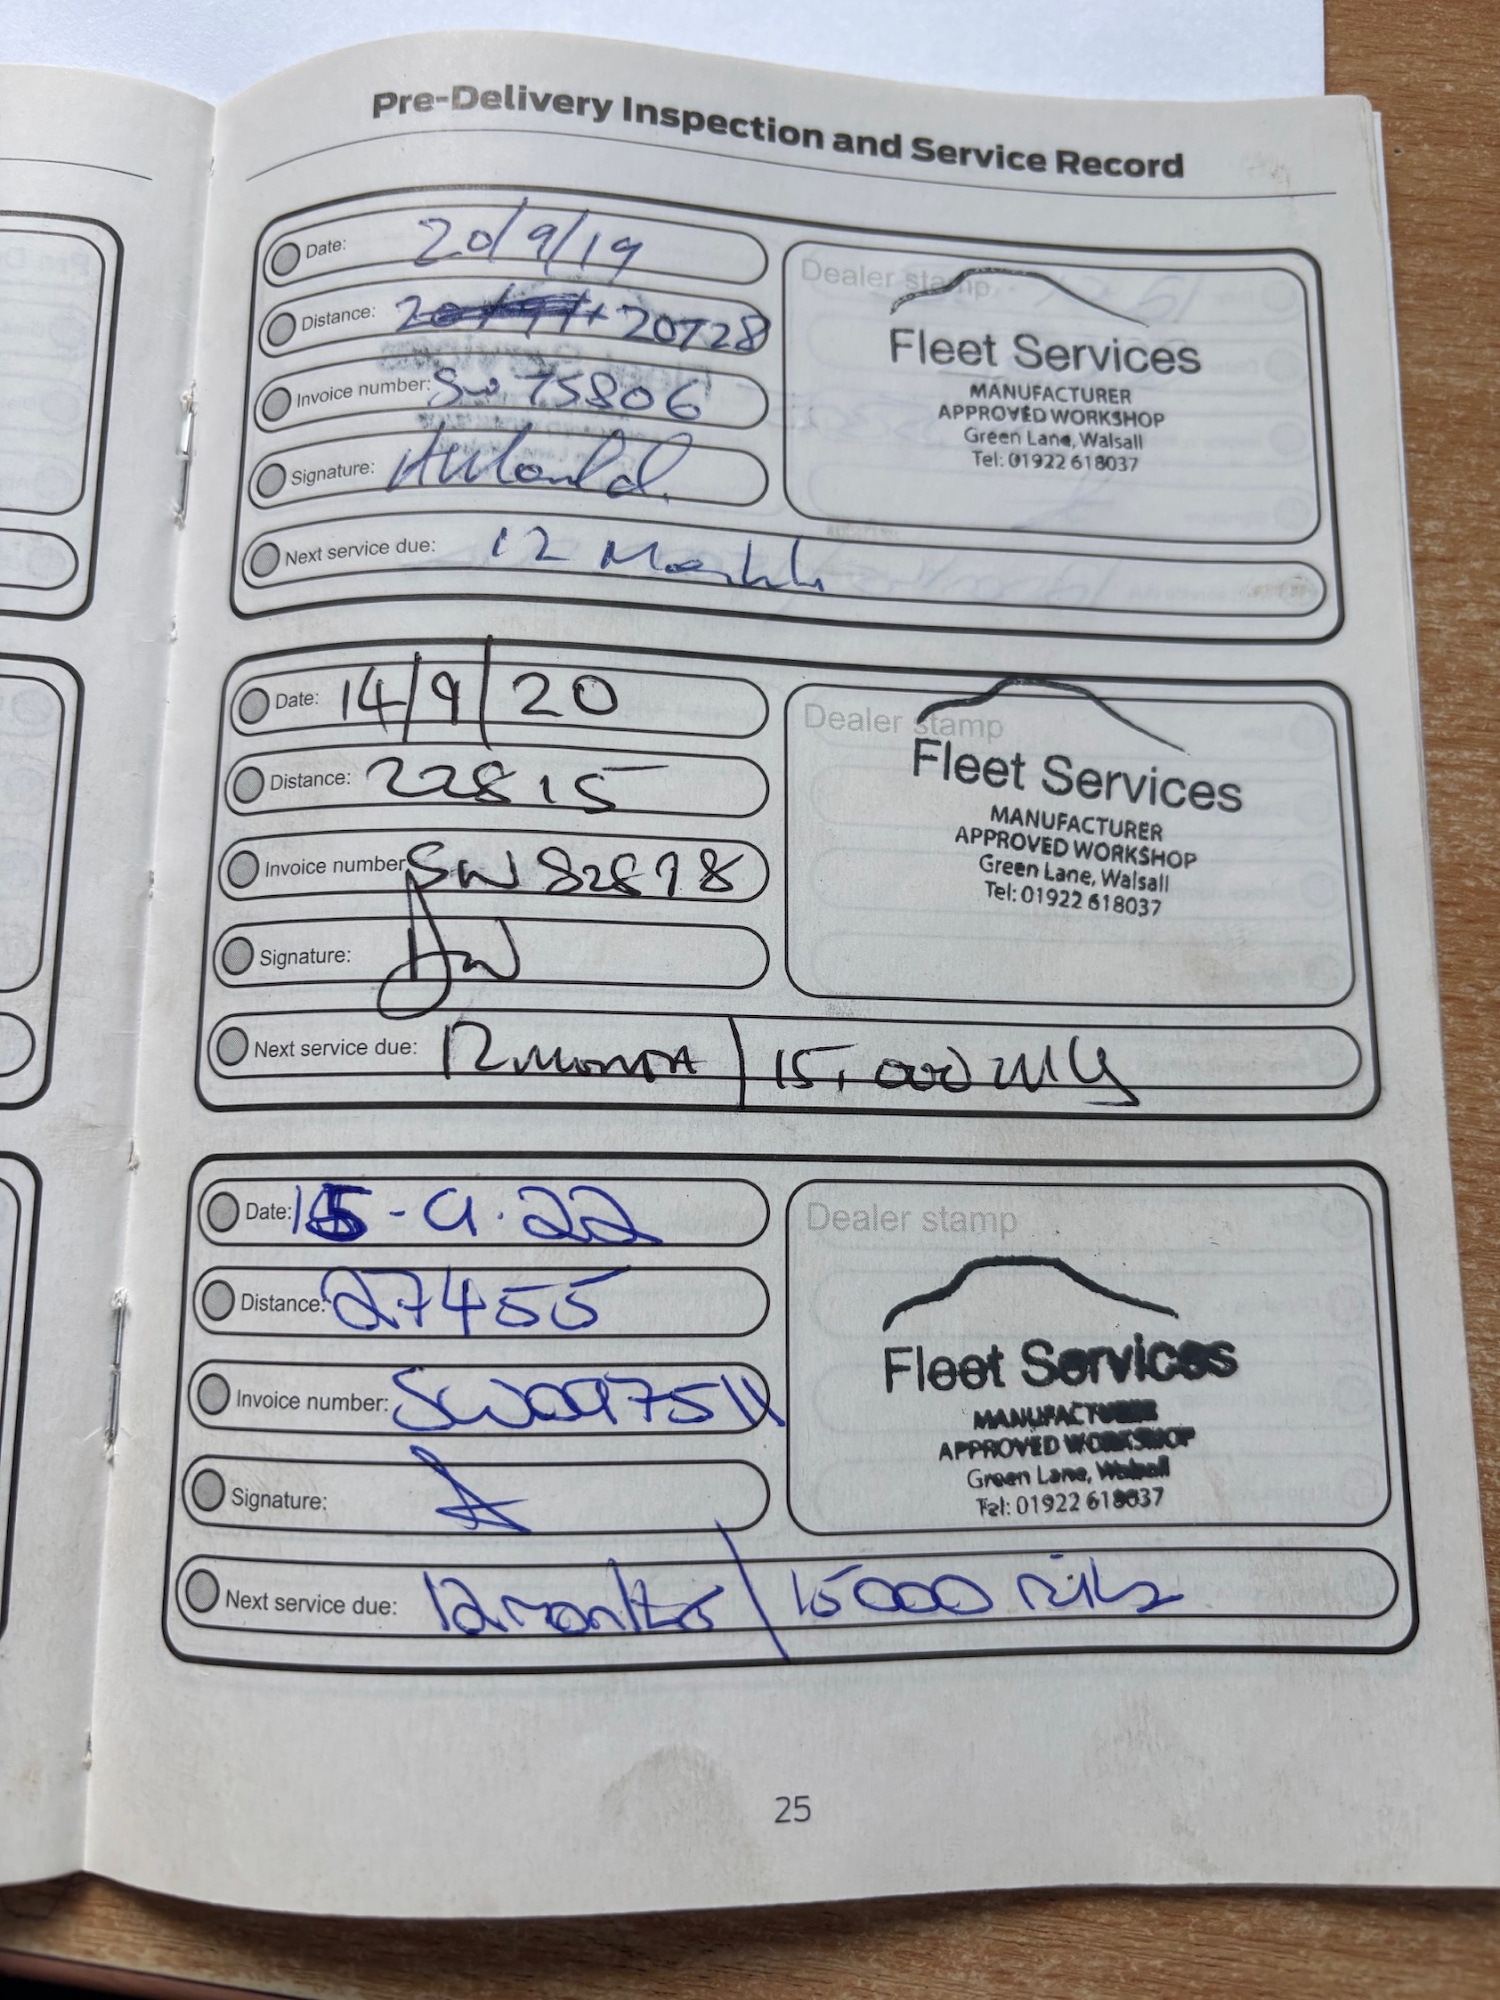 Pre-Delivery Inspection and Service Record
Date: 20/9/19
Distance: 20728
Invoice number: SW 75806
Signature:
Next service due: 12 Months
Dealer stamp
Fleet Services
MANUFACTURER
APPROVED WORKSHOP
Green Lane, Walsall
Tel: 01922 618037
Date: 14/9/20
Distance: 22815
Invoice number: SW 82898
Signature:
Next service due: 12 MONTH / 15,000 MLS
Dealer stamp
Fleet Services
MANUFACTURER
APPROVED WORKSHOP
Green Lane, Walsall
Tel: 01922 618037
Date: 15-9.22
Distance: 27455
Invoice number: SW097511
Signature:
Next service due: 12 months / 15000 miles
Dealer stamp
Fleet Services
MANUFACTURER
APPROVED WORKSHOP
Green Lane, Walsall
Tel: 01922 618037
25